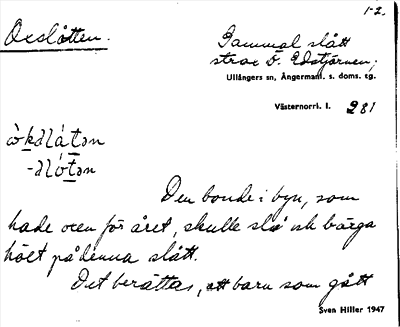 1-2.
Oxslåtten.
Gammal slått
strax Ö. Edstjärnen,
Ullångers sn, Ångermanl. s. doms. tg.
Västernorrl. l. 281
Den bonde i byn, som
hade oxen för året, skulle slå och bärga
höet på denna slått.
Det berättas, att barn som gått
Sven Hiller 1947